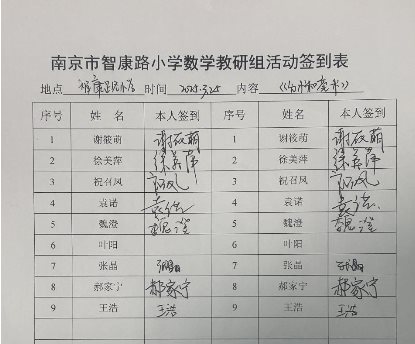 南京市智康路小学数学教研组活动签到表
地点 时间 2025.3.25 内容
序号 姓名 本人签到 序号 姓名 本人签到
1 谢筱萌 谢筱萌 1 谢筱萌 谢筱萌
2 徐美萍 徐美萍 2 徐美萍 徐美萍
3 祝召风 3 祝召风
4 袁诺 袁诺 4 袁诺 袁诺
5 魏澄 魏澄 5 魏澄 魏澄
6 叶阳 6 叶阳
7 张晶 张晶 7 张晶 张晶
8 郝家宁 郝家宁 8 郝家宁 郝家宁
9 王浩 王浩 9 王浩 王浩